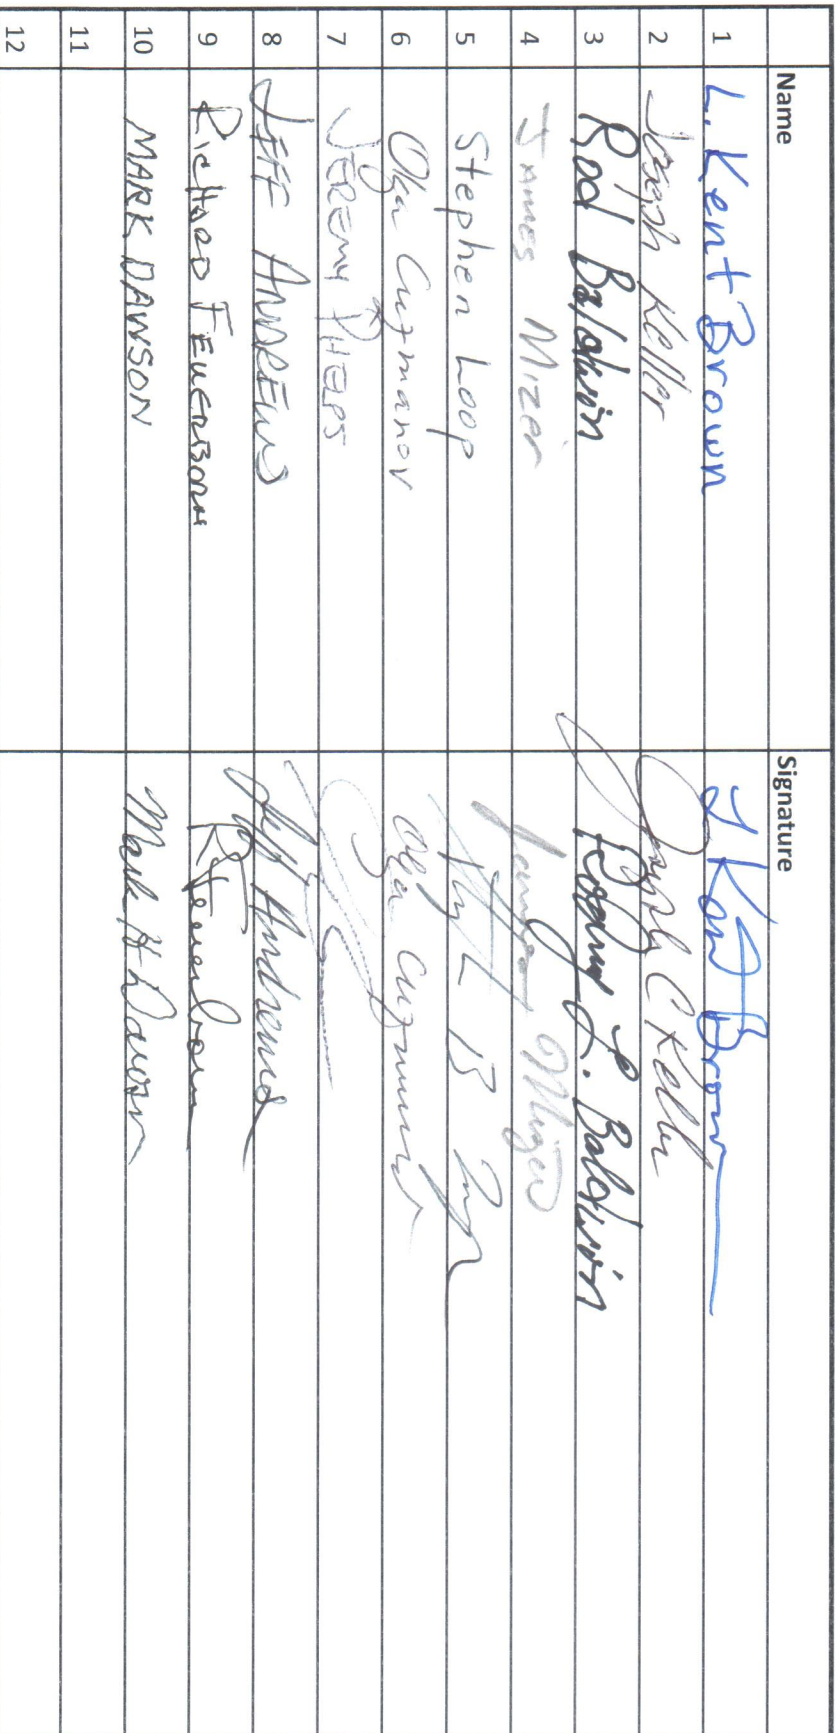 Name Signature
1 L. Kent Brown L Kent Brown
2 Joseph Keller Joseph C Keller
3 Rod Baldwin Rodney L. Baldwin
4 James Mizer James Mizer
5 Stephen Loop
6 Olga Guzmanov Olga
7 JEREMY PHELPS
8 JEFF ANDREWS Jeff Andrews
9 RICHARD FEUERBORN R Feuerborn
10 MARK DAWSON Mark H Dawson
11
12